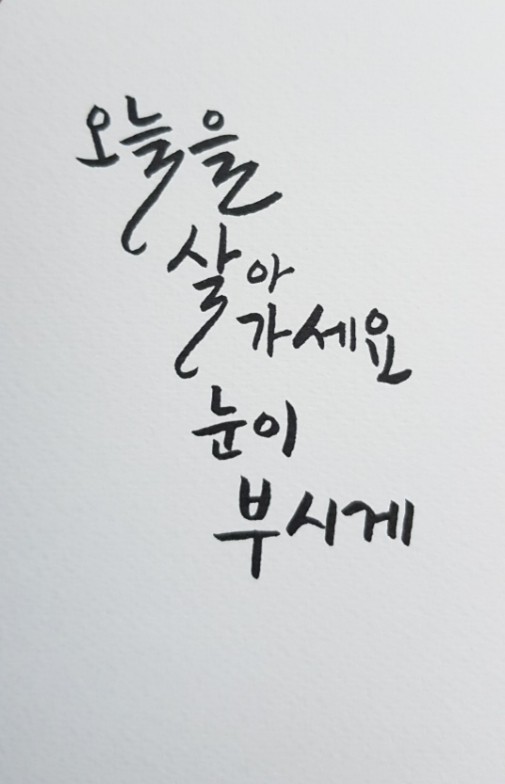 오늘을
살아
가세요
눈이
부시게